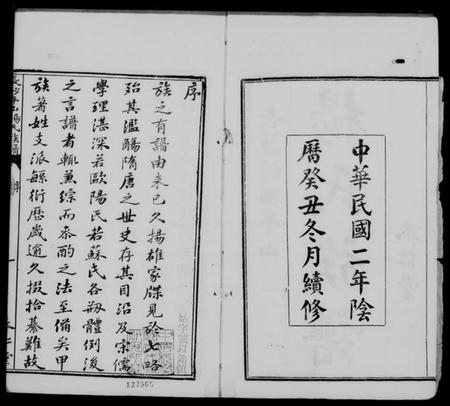 中華民國二年陰
曆癸丑冬月續修
序
族之有譜由來已久揚雄家牒見於七略
殆其濫觴隋唐之世史存其目沿及宋儒
學理湛深若歐陽氏若蘇氏各剏體例後
之言譜者輒兼綜而參酌之法至備矣甲
族著姓支派緜衍歷歲逾久掇拾綦難故
127565